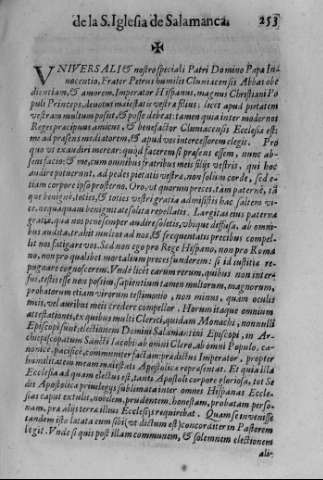 de la S. Iglesia de Salamanca. 253
VNIVERSALI & nostro speciali Patri Domino Papæ In
nocentio, Frater Petrus humilis Cluniacensis Abbas obe
dientiam, & amorem, Imperator Hispanus, magnus Christiani Po
puli Princeps, deuotus maiestatis vestræ filius, licet apud pietatem
vestram multum possit, & posse debeat: tamen quia inter modernos
Reges præcipuus amicus, & benefactor Cluniacensis Ecclesiæ est:
me ad præsens mediatorem, & apud vos intercessorem elegit. Pro
quo vt exaudiri merear: quod facerem si præsens essem, nunc ab-
sens facio: & me, cum omnibus fratribus meis filijs vestris, qui hoc
audire potuerunt, ad pedes pietatis vestræ, non solum corde, sed e-
tiam corpore ipso prosterno. Oro, vt quorum preces, tam paterne, tã
que benigne, toties, & toties vestri gratia admisistis hac saltem vi-
ce, nequaquam benignitate solita repellatis. Largitas eius paterna
gratia, qua nos penè semper audire soletis, vbique diffusa, ab omni-
bus audita, trahit multos ad nos, & frequentatis precibus compel-
lit nos fatigare vos. Sed non ego pro Rege Hispano, non pro Roma
no, non pro quolibet mortalium preces funderem: si id iustitiæ re-
pugnare cognoscerem. Vnde licet earum rerum, quibus non inter-
fui, testis esse non possim, sapientium tamen multorum, magnorum,
probatorum etiam virorum testimonio, non minus, quam oculis
meis, vel auribus meis credere compellor. Horum itaque omnium
attestationes, ex quibus multi Clerici, quidam Monachi, nonnulli
Episcopi sunt, electionem Domini Salamantini Episcopi, in Ar-
chiepiscopatum Sancti Iacobi ab omni Clero, ab omni Populo, ca-
nonice, pacifice, communiter factam, prædictus Imperator, propter
humilitatem meam maiestatis Apostolicæ repræsentat. Et quia illa
Ecclesia ad quam electus est, tanti Apostoli corpore gloriosa, tot Se
dis Apostolicæ priuilegijs sublimata inter omnes Hispanas Eccle-
sias caput extulit, nobilem, prudentem, honestam, probatam perso-
nam, præ alijs terræ illius Ecclesijs requirebat. Quam se inuenisse
tandem in isto lætata cum sibi (vt dictum est) concorditer in Pastorem
legit. Vnde si quis post illam communem, & solemnem electionem
ali-